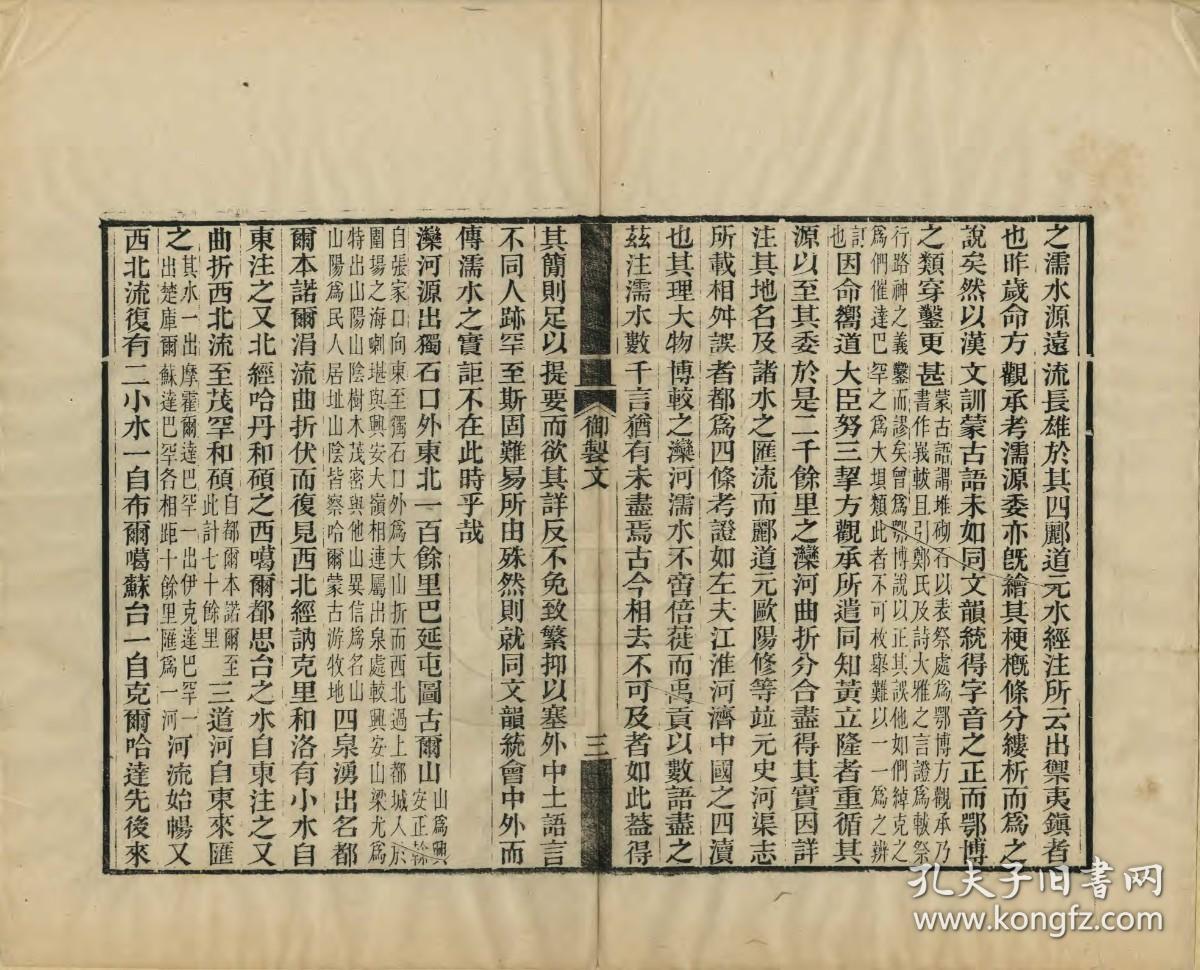 之濡水源遠流長雄於其四酈道元水經注所云出禦夷鎮者
也昨歲命方觀承考濡源委亦旣繪其梗槪條分縷析而爲之
說矣然以漢文訓蒙古語未如同文韻統得字音之正而鄂博
之類穿鑿更甚蒙古語謂堆砌石以表祭處爲鄂博方觀承乃
於書作峩軷且引鄭氏及詩大雅之言證爲軷祭
行路神之義鑿而謬矣曾爲鄂博說以正其誤他如們綽克之
爲們催達巴罕之爲大壩類此者不可枚舉難以一一爲之辨
訂
也因命嚮道大臣努三挈方觀承所遣同知黃立隆者重循其
源以至其委於是二千餘里之灤河曲折分合盡得其實因詳
注其地名及諸水之匯流而酈道元歐陽修等竝元史河渠志
所載相舛誤者都爲四條考證如左夫江淮河濟中國之四瀆
也其理大物博較之灤河濡水不啻倍蓰而禹貢以數語盡之
茲注濡水數千言猶有未盡焉古今相去不可及者如此葢得
御製文
三
其簡則足以提要而欲其詳反不免致繁抑以塞外中土語言
不同人跡罕至斯固難易所由殊然則就同文韻統會中外而
傳濡水之實詎不在此時乎哉
灤河源出獨石口外東北一百餘里巴延屯圖古爾山山爲興
安正榦
自張家口向東至獨石口外爲大山折而西北過上都城入於
圍場之海喇堪與興安大嶺相連屬出泉處較興安山梁尤爲
特出山陽山陰樹木茂密與他山異信爲名山
山陽爲民人居址山陰皆察哈爾蒙古游牧地四泉湧出名都
爾本諾爾涓流曲折伏而復見西北經訥克里和洛有小水自
東注之又北經哈丹和碩之西噶爾都思台之水自東注之又
曲折西北流至茂罕和碩自都爾本諾爾至
此計七十餘里三道河自東來匯
之其水一出摩霍爾達巴罕一出伊克達巴罕一
出楚庫爾蘇達巴罕各相距十餘里匯爲一河河流始暢又
西北流復有二小水一自布爾噶蘇台一自克爾哈達先後來
孔夫子旧書网
www.kongfz.com